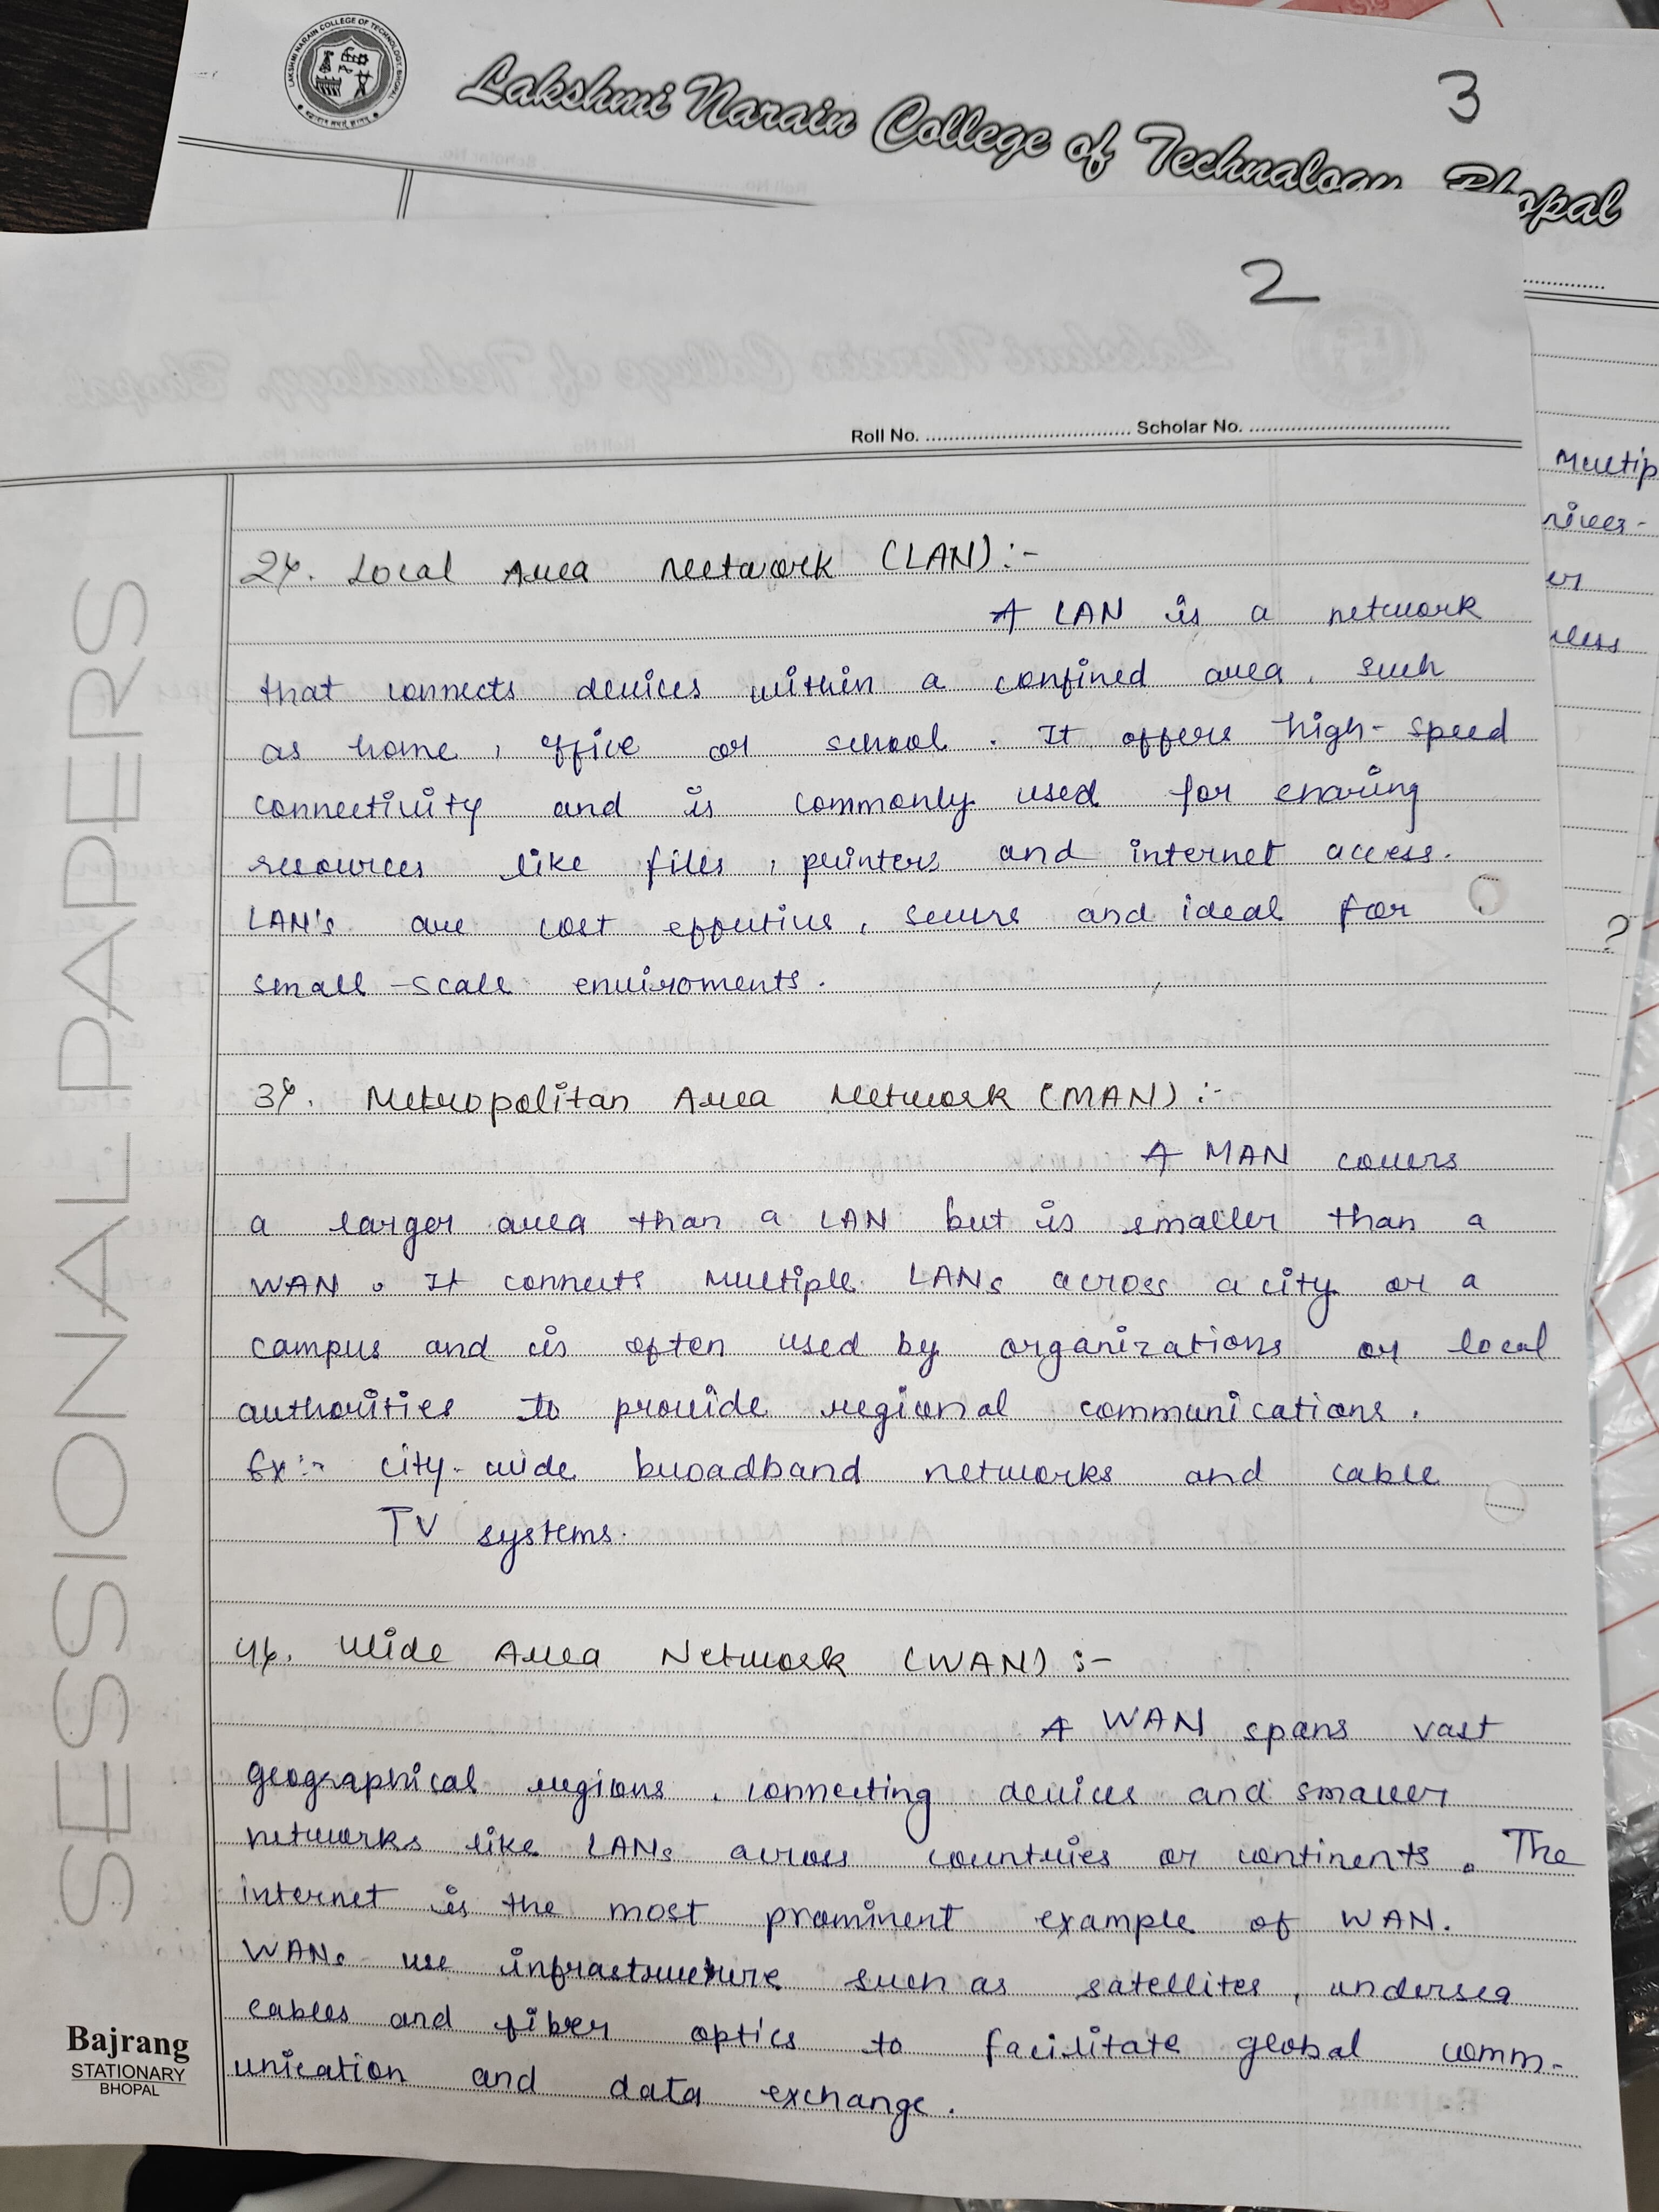 LAKSHMI NARAIN COLLEGE OF TECHNOLOGY, BHOPAL
Lakshmi Narain College of Technology, Bhopal
3
2
Roll No. Scholar No.
Multip
er
less
?
SESSIONAL PAPERS
2. Local Area Network (LAN) :-
A LAN is a network
that connects devices within a confined area, such
as home, office or school. It offers high-speed
connectivity and is commonly used for sharing
resources like files, printers and internet access.
LAN's are cost effective, secure and ideal for
small-scale enviroments.
3. Metropolitan Area Network (MAN) :-
A MAN covers
a larger area than a LAN but is smaller than a
WAN. It connects multiple LANs across a city or a
campus and is often used by organizations or local
authorities to provide regional communications.
Ex:- city-wide broadband networks and cable
TV systems.
4. Wide Area Network (WAN) :-
A WAN spans vast
geographical regions, connecting devices and smaller
networks like LANs across countries or continents. The
internet is the most prominent example of WAN.
WANs use infrastructure such as satellites, undersea
cables and fiber optics to facilitate global comm-
unication and data exchange.
Bajrang
STATIONARY
BHOPAL